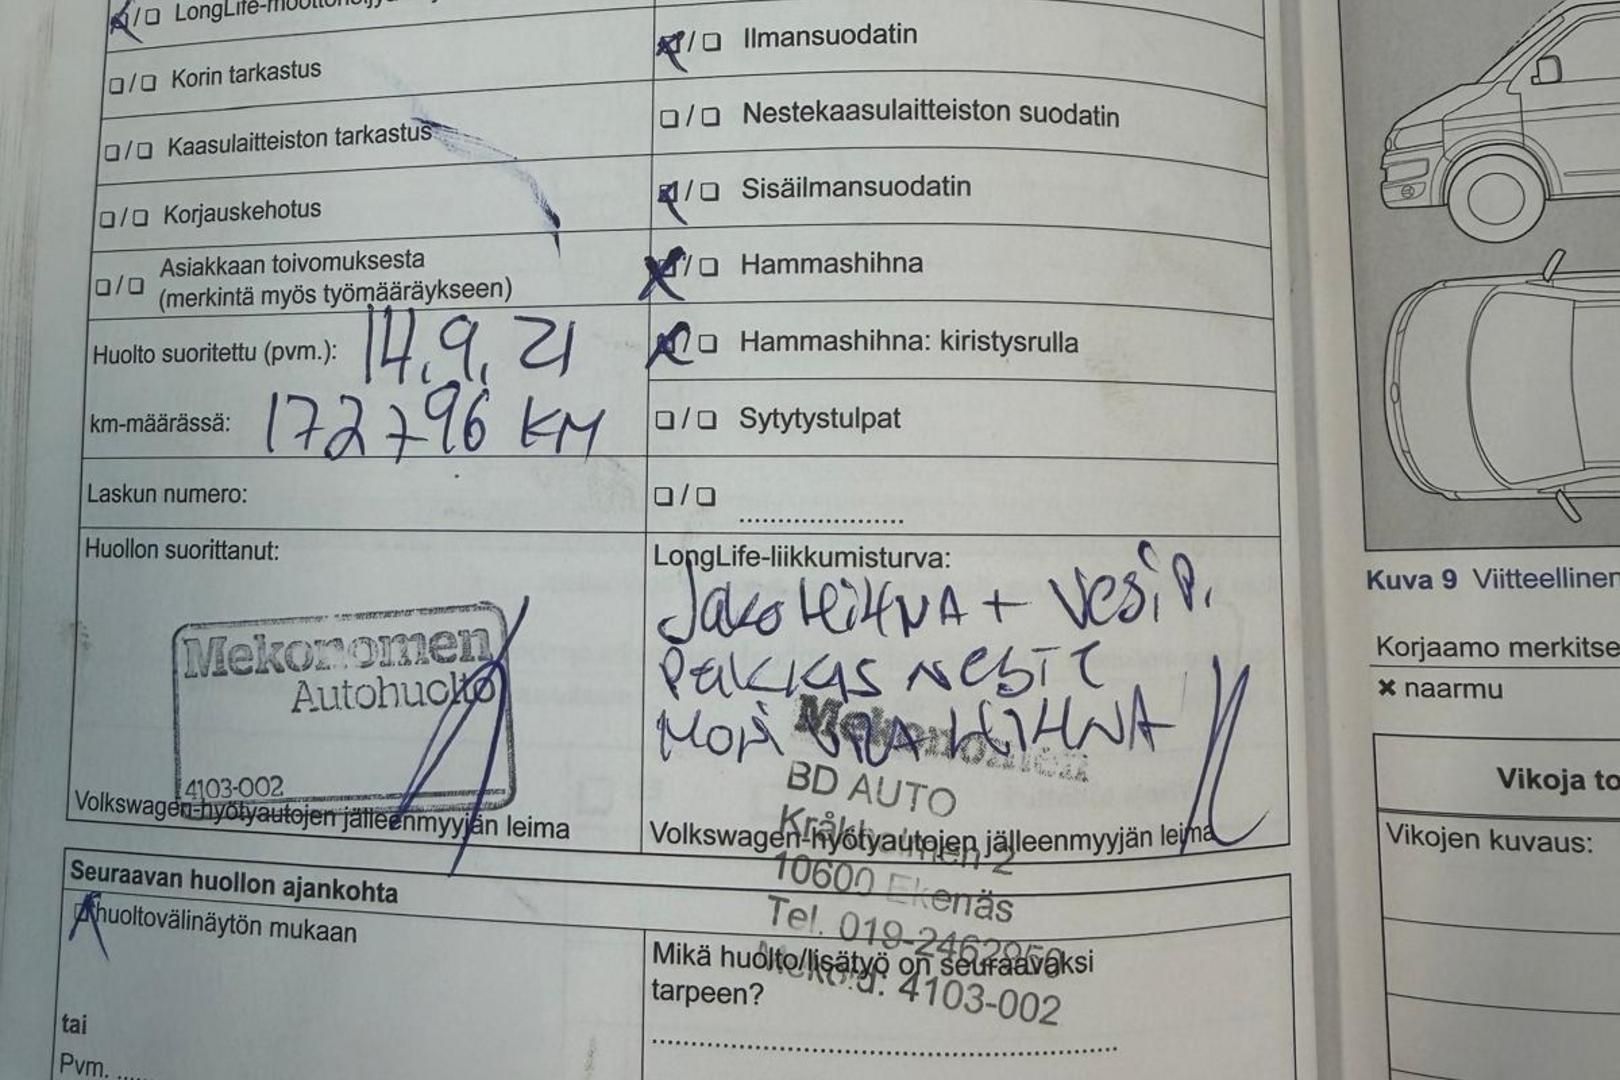 LongLife-moottoriöljy
Korin tarkastus
Kaasulaitteiston tarkastus
Korjauskehotus
Asiakkaan toivomuksesta
(merkintä myös työmääräykseen)
Huolto suoritettu (pvm.): 14.9.21
km-määrässä: 172796 KM
Laskun numero:
Huollon suorittanut:
Mekonomen
Autohuolto
4103-002
Volkswagen-hyötyautojen jälleenmyyjän leima
Ilmansuodatin
Nestekaasulaitteiston suodatin
Sisäilmansuodatin
Hammashihna
Hammashihna: kiristysrulla
Sytytystulpat
LongLife-liikkumisturva:
Jako HiHNA + Vesi P.
PAKKAS NESTE
MONi URA HiHNA
Mekonomen
BD AUTO
Volkswagen-hyötyautojen jälleenmyyjän leima
10600 Ekenäs
Tel. 019-2462950
4103-002
Seuraavan huollon ajankohta
huoltovälinäytön mukaan
tai
Pvm.
Mikä huolto/lisätyö on seuraavaksi
tarpeen?
Kuva 9 Viitteellinen
Korjaamo merkitse
× naarmu
Vikoja to
Vikojen kuvaus: